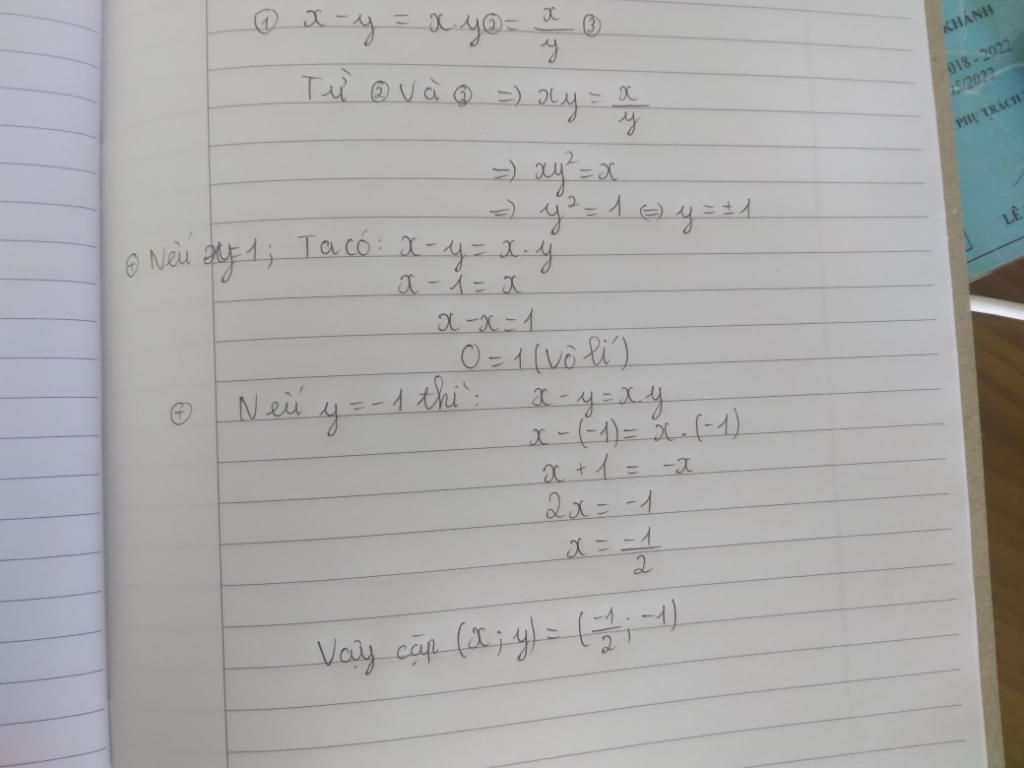 ① x - y = x.y ② = x/y ③
Từ ② và ③ => xy = x/y
=> xy² = x
=> y² = 1 <=> y = ±1
+ Nếu y=1; Ta có: x - y = x . y
x - 1 = x
x - x = 1
0 = 1 (vô lí)
+ Nếu y = -1 thì: x - y = x.y
x - (-1) = x . (-1)
x + 1 = -x
2x = -1
x = -1/2
Vậy cặp (x; y) = (-1/2; -1)
KHÁNH
018 - 2022
5/2022
PHỤ TRÁCH